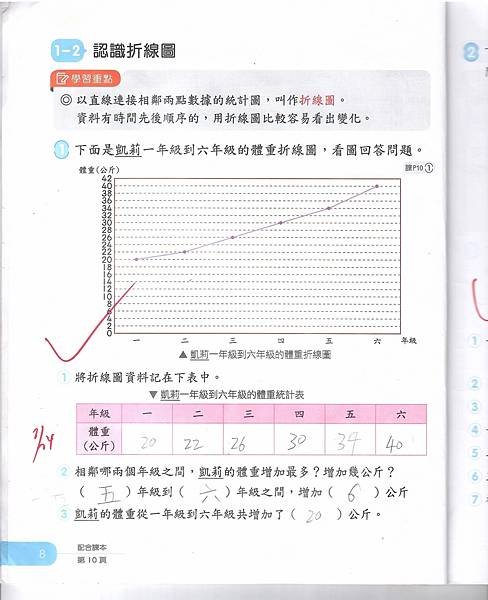 1-2 認識折線圖
學習重點
◎ 以直線連接相鄰兩點數據的統計圖，叫作折線圖。
資料有時間先後順序的，用折線圖比較容易看出變化。
1 下面是凱莉一年級到六年級的體重折線圖，看圖回答問題。
體重(公斤)
課P10 ①
42
40
38
36
34
32
30
28
26
24
22
20
18
16
14
12
10
8
6
4
2
0
一 二 三 四 五 六 年級
▲ 凱莉一年級到六年級的體重折線圖
1 將折線圖資料記在下表中。
▼ 凱莉一年級到六年級的體重統計表
年級 一 二 三 四 五 六
體重(公斤) 20 22 26 30 34 40
2 相鄰哪兩個年級之間，凱莉的體重增加最多？增加幾公斤？
（ 五 ）年級到（ 六 ）年級之間，增加（ 6 ）公斤
3 凱莉的體重從一年級到六年級共增加了（ 20 ）公斤。
8
配合課本
第10頁
2
1
2
3
4
5
6
7